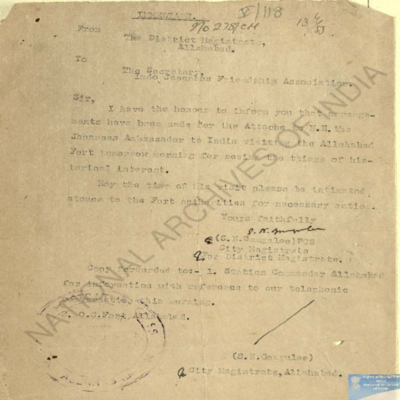 V/118
No 275/CM
From
The District Magistrate,
Allahabad.
To
The Secretary,
Indo Japanies Friendship Association.
Sir,
I have the honour to inform you that
have been made for the Attache, H.E. the
Ambassador to India visiting the Allahabad
Fort tomorrow morning for seeing the things of his-
torical interest.
May the time of his visit please be intimated
atonce to the Fort authorities for necessary action.
Yours faithfully
PCS
City Magistrate
for District Magistrate.
Copy forwarded to:- 1. Station Commander Allahabad
for information with reference to our telephonic
this morning.
2. O.C. Fort, Allahabad.
City Magistrate, Allahabad.
NATIONAL ARCHIVES OF INDIA